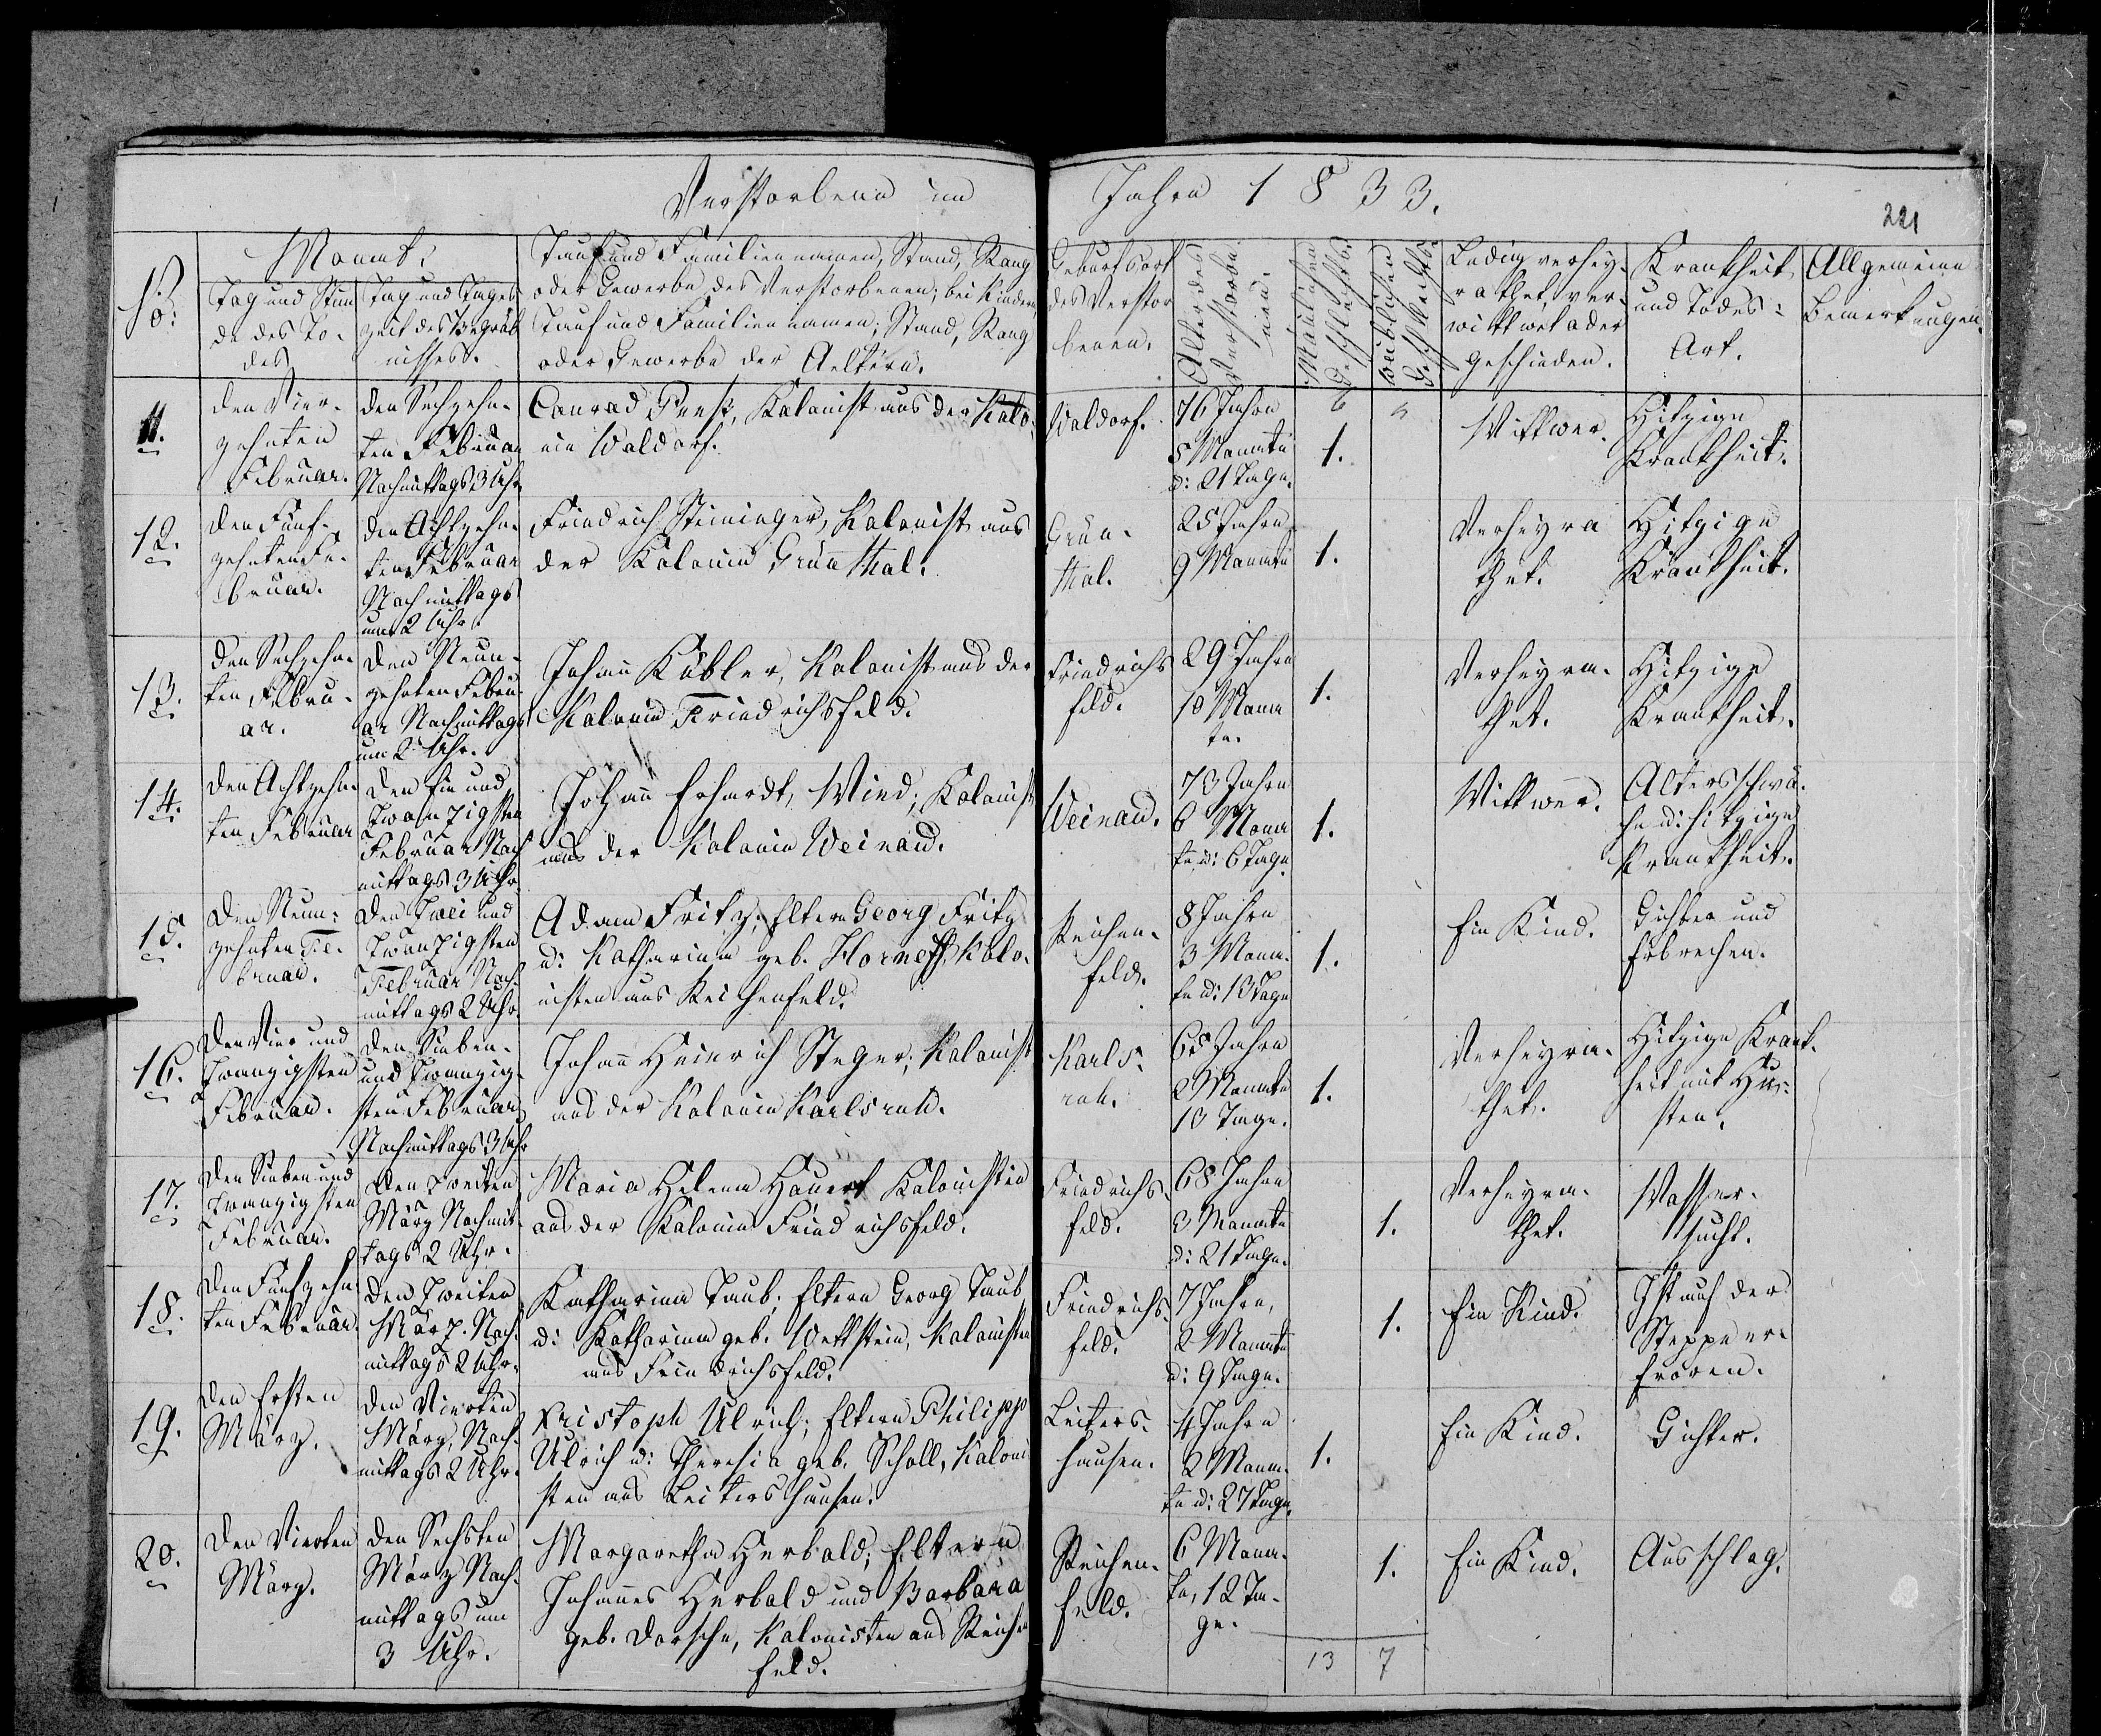 Verstorbene im Jahre 1833.
221
No:
Monat.
Tag und Stun
de des To-
des
Tag und Tages
zeit des Begräb
nisses.
Tauf und Familiennamen, Stand, Rang
oder Gewerbe des Verstorbenen; bei Kindern
Tauf und Familiennamen, Stand, Rang
oder Gewerbe der Aeltern.
Geburtsort
des Verstor
benen.
Alter des
Verstorbe
nen.
Mänlichen
Geschlechtes
Weiblichen
Geschlechtes.
Ledig verhey-
rathet, ver-
wittwet oder
geschieden.
Krankheit
und Todes-
Art.
Allgemeine
Bemerkungen.
11.
den Vier-
zehnten
Februar.
den Sechzehn-
ten Februar
Nachmittags 3 Uhr
Conrad, Kolonist aus der Kolo-
nie Waldorf.
Waldorf.
76 Jahre
5 Monate
u: 21 Tage.
6
1.
Wittwer.
Hitzige
Krankheit.
12.
den Fünf-
zehnten Fe-
bruar.
den Achtzehn-
ten Februar
Nachmittags
um 2 Uhr.
Friedrich Steininger, Kolonist aus
der Kolonie Grünthal.
Grün-
thal.
25 Jahre
9 Monate
1.
Verheyra
thet.
Hitzige
Krankheit.
13.
den Sechzehn-
ten Febru-
ar.
den Neun-
zehnten Febru-
ar Nachmittags
um 2 Uhr.
Johann Kübler, Kolonist aus der
Kolonie Friedrichsfeld.
Friedrichs
feld.
29 Jahre
10 Mona
te.
1.
Verheyra-
thet.
Hitzige
Krankheit.
14.
den Achtzehn-
ten Februar
den Ein und
Zwanzigsten
Februar Nach
mittags 3 Uhr.
Johann Erhardt, Wied; Kolonist
aus der Kolonie Weinau.
Weinau.
73 Jahre
6 Mona
te, u: 6 Tage.
1.
Wittwer.
Altersschwä-
che u: hitzige
Krankheit.
15.
den Neun-
zehnten Fe-
bruar.
den Zwei und
Zwanzigsten
Februar Nach-
mittags 2 Uhr.
Adam Fritz; Eltern Georg Fritz
u: Katharina geb. Horneff Kolo-
nisten aus Reichenfeld.
Reichen-
feld.
8 Jahre
3 Mona-
te u: 13 Tage
1.
Ein Kind.
Gichter und
Erbrechen.
16.
den Vier und
Zwanzigsten
Februar.
den Sieben-
und Zwanzig-
sten Februar
Nachmittags 3 Uhr
Johann Heinrich Steger; Kolonist
aus der Kolonie Karlsruh.
Karls-
ruh.
65 Jahre
2 Monate
10 Tage.
1.
Verheyra-
thet.
Hitzige Krank-
heit mit Hu-
sten.
17.
den Sieben und
Zwanzigsten
Februar.
den Zweiten
März Nachmit-
tags 2 Uhr.
Maria Helena Kolonistin
aus der Kolonie Friedrichsfeld.
Friedrichs-
feld.
68 Jahre
3 Monate
u: 21 Tage.
1.
Verheyra-
thet.
Wasser-
sucht.
18.
den Fünfzehn
ten Februar.
den Zweiten
März. Nach-
mittags 2 Uhr.
Katharina Taub; Eltern Georg Taub
u: Katharina geb. Wettstein, Kolonisten
aus Friedrichsfeld.
Friedrichs-
feld.
7 Jahre,
2 Monate
u: 9 Tage.
1.
Ein Kind.
Ist auf der
Steppe er-
froren.
19.
den Ersten
März.
den Vierten
März, Nach-
mittags 2 Uhr.
Kristoph Ulrich; Eltern Philipp
Ulrich u: Theresia geb. Scholl, Koloni
sten aus Leitershausen.
Leiters-
hausen.
4 Jahre
2 Mona-
te u: 27 Tage.
1.
Ein Kind.
Gichter.
20.
den Vierten
März.
den Sechsten
März Nach-
mittags um
3 Uhr.
Margaretha Herbold; Eltern
Johannes Herbold und Barbara
geb. Dorsche, Kolonisten aus Reichen
feld.
Reichen-
feld.
6 Mona-
te, 12 Ta-
ge.
1.
Ein Kind.
Ausschlag.
13
7